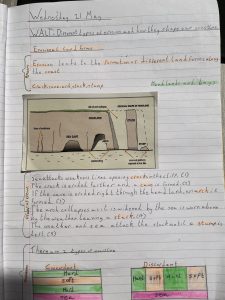 Wednesday 21 May
WALT: Different types of erosion and how they shape our coastlines
Erosional land forms
Erosion leads to the formation of different land forms along
the coast
Headlands and bays
Crack→cave→arch→stack→stump
CRACK
CAVE
ARCH
STACK
STUMP
Sea attacks weakness lines opening cracks in the cliff. (1)
The crack is eroded further and a cave is formed (2)
If the cave is eroded right through the headland, an arch is
formed (3)
The arch collapses as it is widened by the sea is worn above
by the weather leaving a stack (4)
The weather and sea attack the stack until a stump is
left (5)
There are 2 types of coastline
Concordant
Discordant
Hard
Soft
Hard
Soft
Sea
Hard
Soft
Hard
Soft
Sea